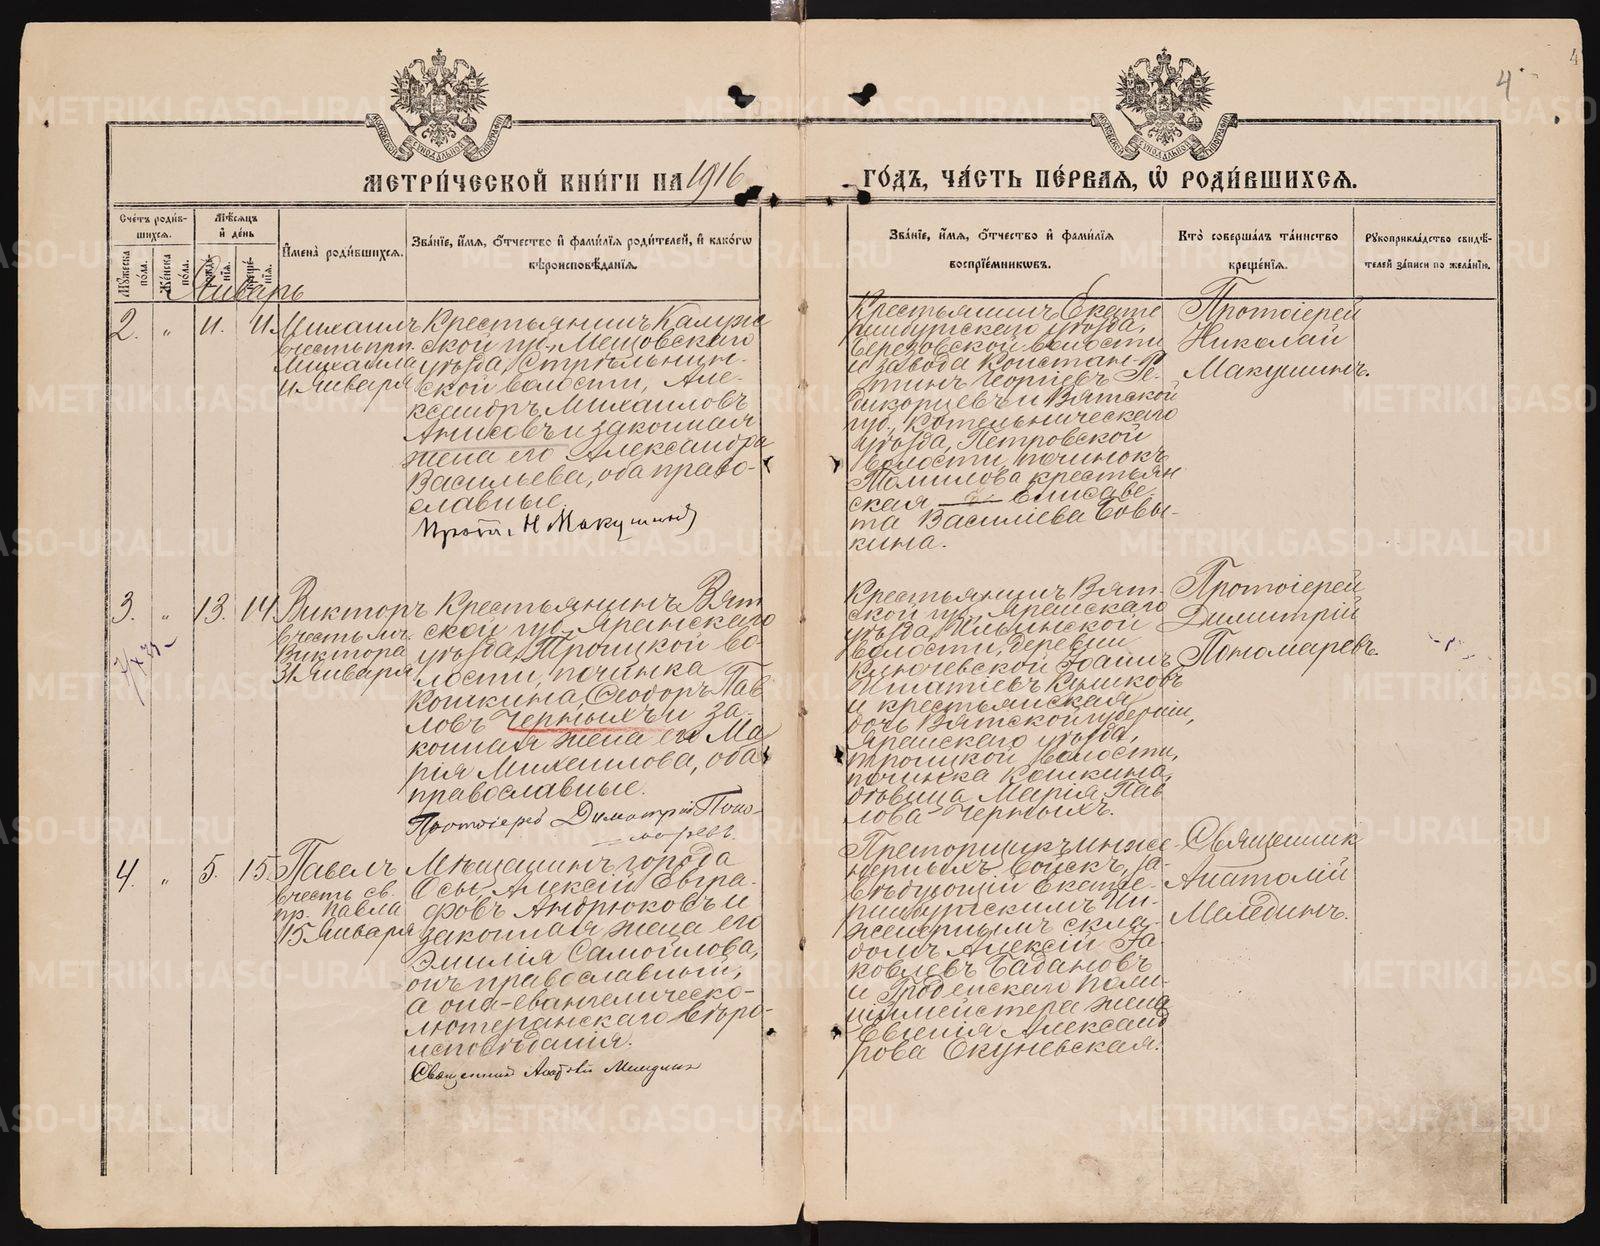 4
4
МЕТРИ́ЧЕСКОЙ КНИ́ГИ НА 1916 ГО́ДЪ, ЧА́СТЬ ПЕ́РВАЯ, Ѽ РОДИ́ВШИХСЯ.
Сче́тъ роди́в-
шихся.
Му́жеска по́ла.
Же́нска по́ла.
Мѣ́сяцъ
и҆ де́нь
рожде́-
нїя.
креще́-
нїя.
И҆мена̀ роди́вшихся.
Зва́нїе, и҆́мя, ѻ҆́тчество и҆ фами́лїя роди́телей, и҆ како́гѡ
вѣроисповѣ́данїя.
Зва́нїе, и҆́мя, ѻ҆́тчество и҆ фами́лїя
воспрїе́мниковъ.
Кто̀ соверша́лъ та́инство
креще́нїя.
Рукоприкла́дство свидѣ́-
телей за́писи по жела́нїю.
Январь
2. „ 11. 11.
Михаилъ
въ честь прп.
Михаила
11 января
Крестьянинъ Калуж
ской губ., Мещовскаго
уѣзда, Стрѣльнин-
ской волости, Але-
ксандръ Михаиловъ
Анисовъ и законная
жена его Александра
Васильева, оба право-
славные.
Прот. Н Макушинъ
Крестьянинъ Екате
ринбургскаго уѣзда,
Березовской волости
и завода Констан-
тинъ Георгіевъ Ре-
дикорцевъ и Вятской
губ. Котельническаго
уѣзда, Петровской
волости, починокъ
Томилова крестьян
ская Елисаве-
та Василіева Бовы-
кина.
Протоіерей
Николай
Макушинъ.
3. „ 13. 14
Викторъ
въ честь мч.
Виктора
31 января
Крестьянинъ Вят
ской губ., Яранскаго
уѣзда, Троицкой во-
лости, починка
Кошкина, Ѳеодоръ Пав
ловъ Черныхъ и за-
конная жена его Ма
рія Михеилова, оба
православные.
Протоіерей Димитрій Поно-
маревъ
Крестьянинъ Вят-
ской губ., Яранскаго
уѣзда, Ильинской
волости, деревни
Ключевской Іоаннъ
Игнатіевъ Кликовъ
и крестьянская
дочь Вятской губерніи,
Яранскаго уѣзда,
Троицкой волости,
починка Кошкина,
дѣвица Марія Пав
лова Черныхъ.
Протоіерей
Димитрій
Пономаревъ.
4. „ 5. 15.
Павелъ
въ честь св.
пр. Павла
15 января
Мѣщанинъ города
Осы Алексій Евгра-
фовъ Андрюковъ и
законная жена его
Эмилія Самойлова,
онъ православный,
а она-евангелическо-
лютеранскаго вѣро-
исповѣданія.
Священникъ Анатолій Меледин
инже
нерныхъ войскъ, за-
вѣдующій Екате-
ринбургскимъ Ин-
женернымъ скла-
домъ Алексій Іа-
ковлевъ Бадановъ
и Гродненскаго поли-
циймейстера жена
Евгенія Александ
рова Окуневская.
Священник
Анатолій
Мелединъ.
METRIKI.GASO-URAL.RU